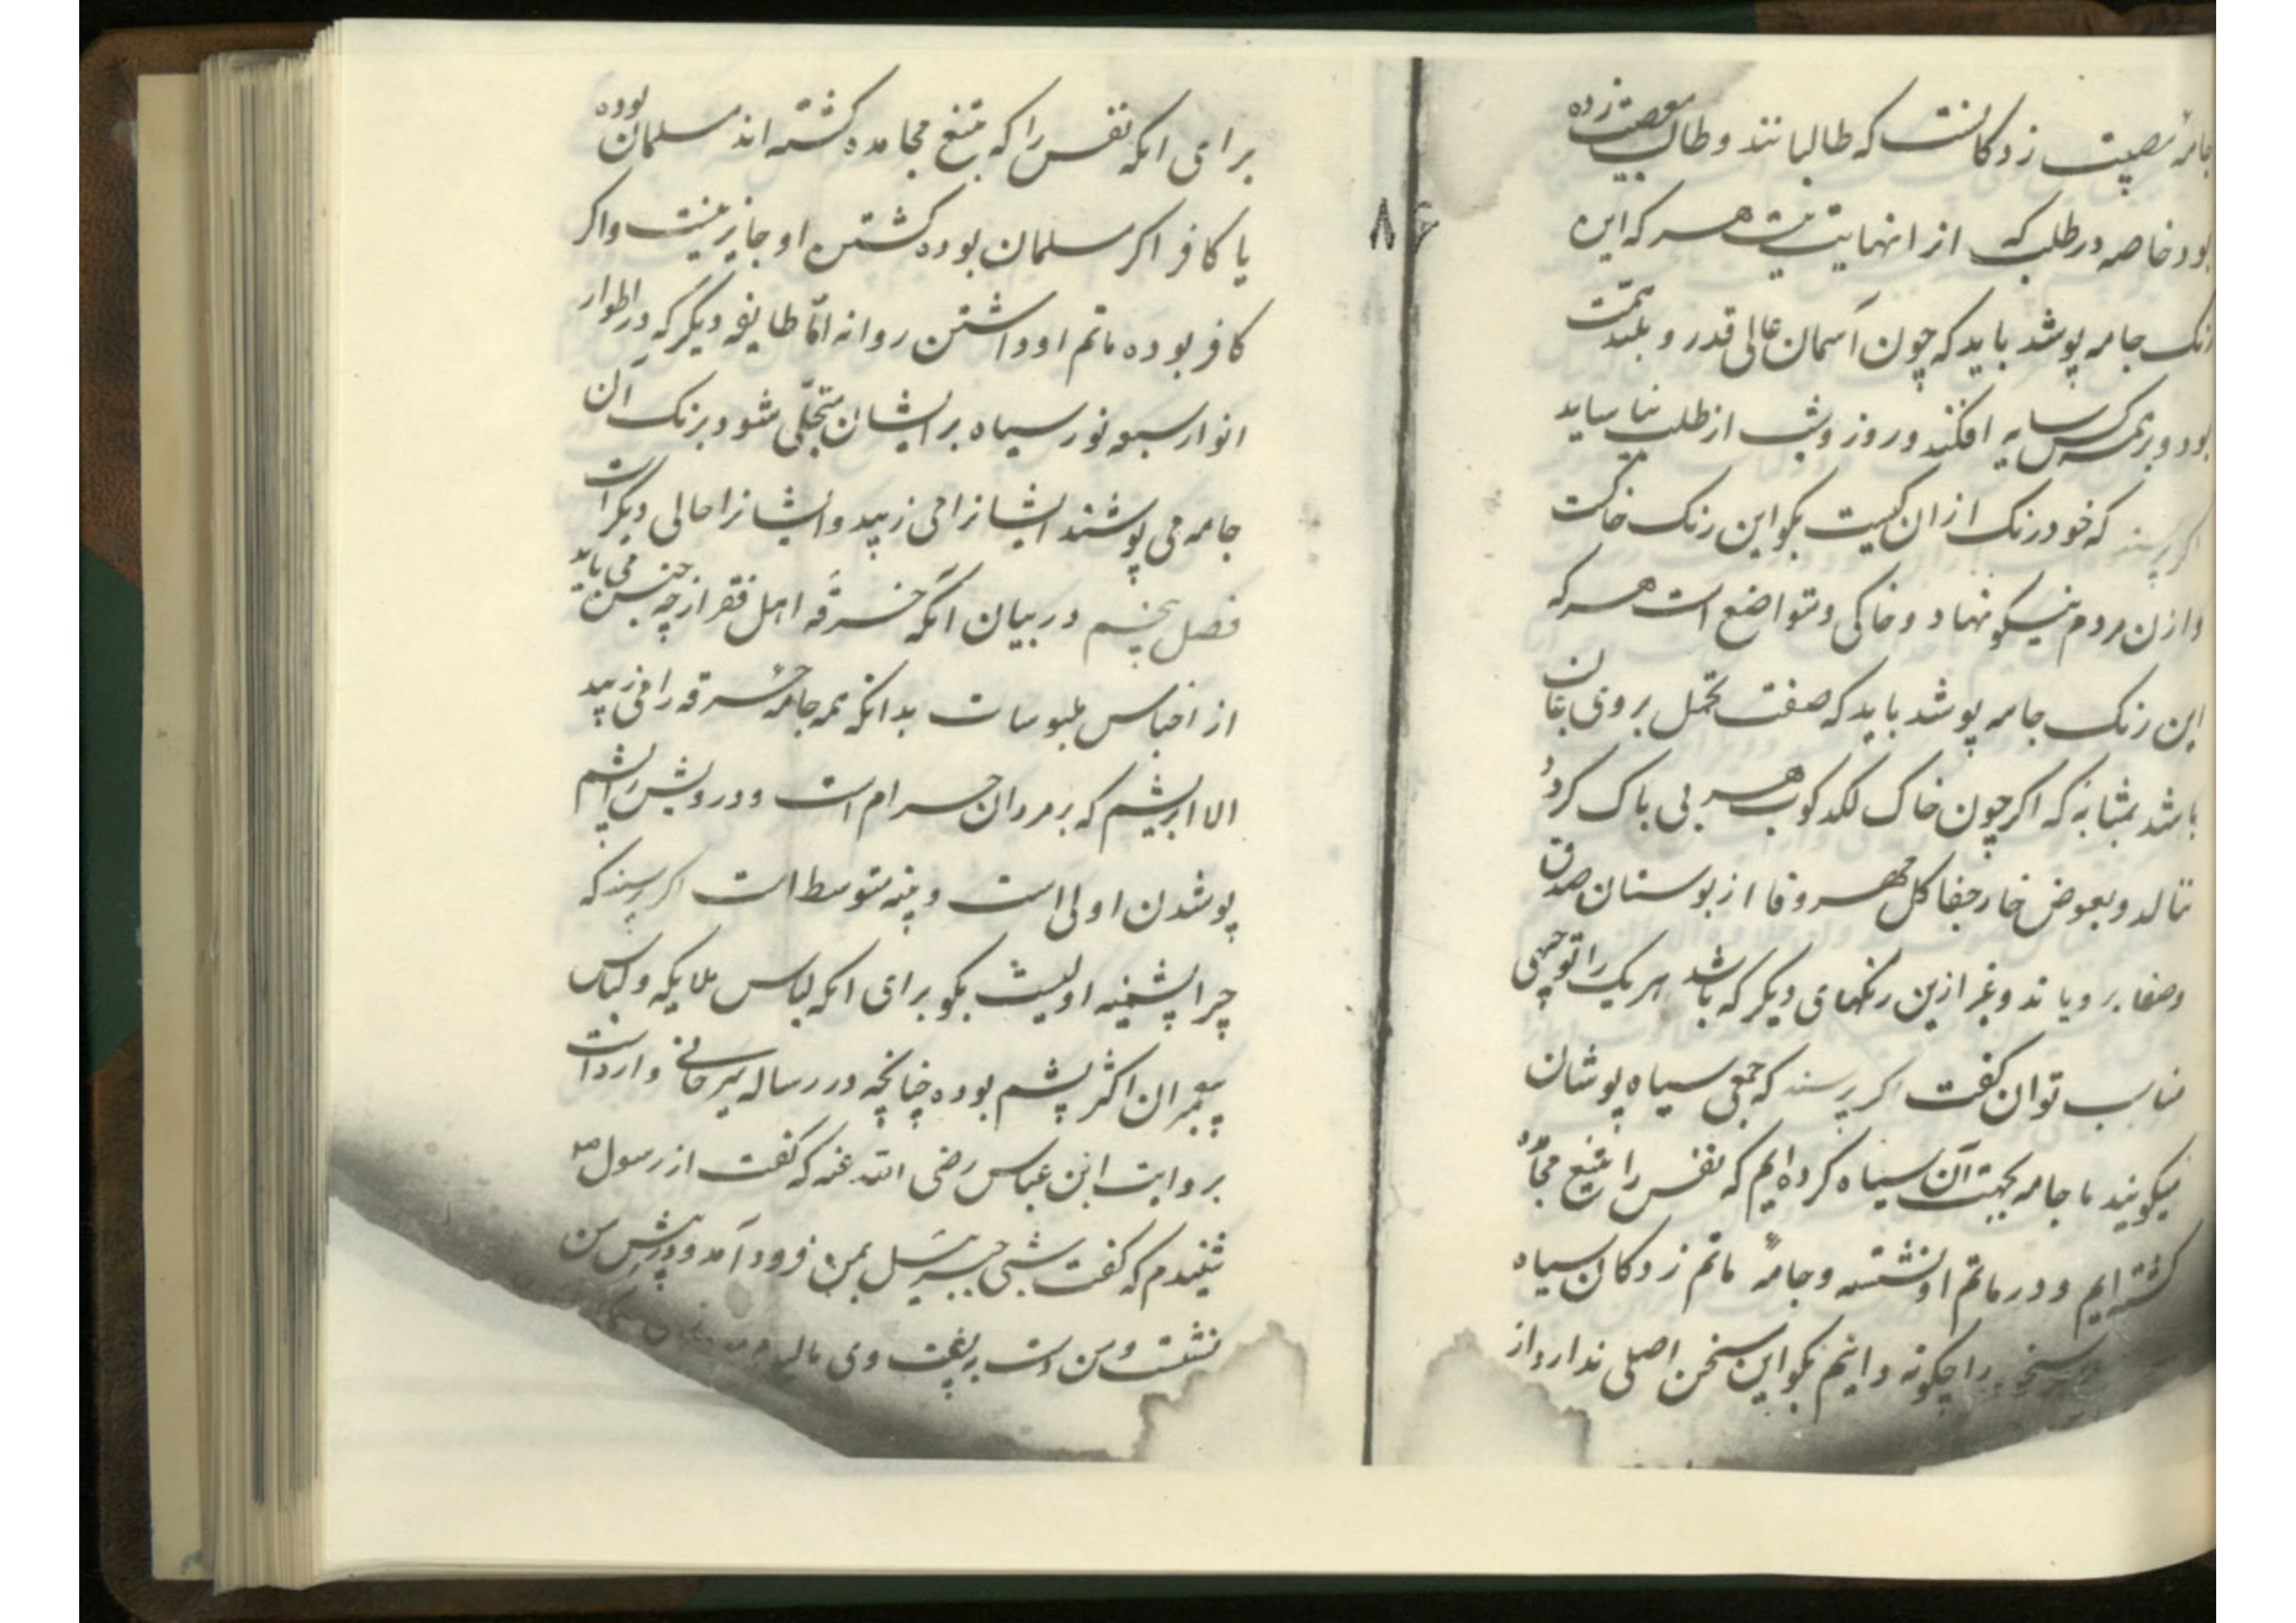 جامه مصیبت زدکانست که طالبانند و طالب مصیبت زده
بود خاصه در طلب که از انهایت نیست هر که این
رنک جامه پوشد باید که چون آسمان عالی قدر و بلند همت
بود و بر همه کس سایه افکند و روز و شب از طلب نیاساید
اکر پرسند که خود رنک از ان کیست بکو این رنک خاکست
و از ن مردم نیکو نهاد و خاکی و متواضع است هر که
این رنک جامه پوشد باید که صفت تحمل بر وی غالب
باشد بمثابه که اکر چون خاک لکدکوب هر بی باک کردد
ننالد و بعوض خار جفا کل مهر و وفا از بوستان صدق
و صفا برویاند و غیر ازین رنکهای دیکر که باشد هر یک را توجیهی
مناسب توان کفت اکر پرسند که جمعی سیاه پوشان
میکویند ما جامه بجهت آن سیاه کرده ایم که نفس را بتیغ مجاهده
کشته ایم و در ماتم او نشسته و جامهٔ ماتم زدکان سیاه
را چکونه دانیم بکو این سخن اصلی ندارد از
۸۶
برای انکه نفس را که بتیغ مجاهده کشته اند مسلمان بوده
یا کافر اکر مسلمان بوده کشتن او جایز نیست و اکر
کافر بوده ماتم او داشتن روا نه امّا طایفه دیکر که در اطوار
انوار سبعه نور سیاه بر ایشان متجلّی شود برنک آن
جامه می پوشند ایشانرا می زیبد و ایشانرا حالی دیکر است
فصل پنجم در بیان آنکه خرقه اهل فقر از چه جنس می باید
از اجناس ملبوسات بدانکه همه جامه خرقه را می زیبد
الا ابریشم که بر مردان حرام است و درویش را پشم
پوشیدن اولی است و پنبه متوسط است اکر پرسند که
چرا پشمینه اولیست بکو برای انکه لباس ملایکه و لباس
پیغمبران اکثر پشم بوده چنانچه در رساله میرخانی وارد است
بروایت ابن عباس رضی الله عنه که کفت از رسول صم
شنیدم که کفت شبی جبرئیل بمن فرود آمد و در پیش من
نشست و من دست بر وی مالیدم